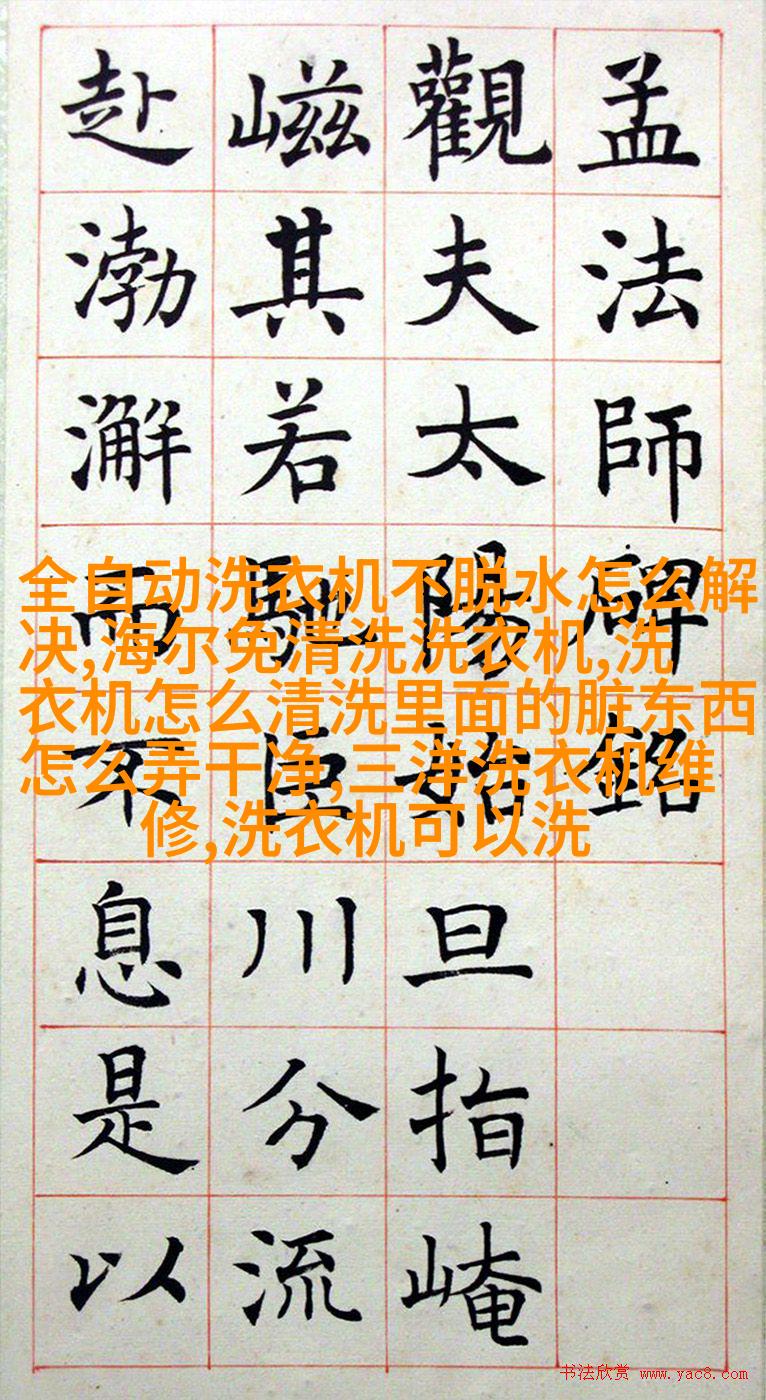 孟法師碑銘
觀夫太陽始旦指崦
嵫其若馳巨川分流
赴渤澥而不息是以
全自动洗衣机不脱水怎么解
决,海尔免清洗洗衣机,洗
衣机怎么清洗里面的脏东西
怎么弄干净,三洋洗衣机维
修,洗衣机可以洗
书法欣赏 www.yac8.com